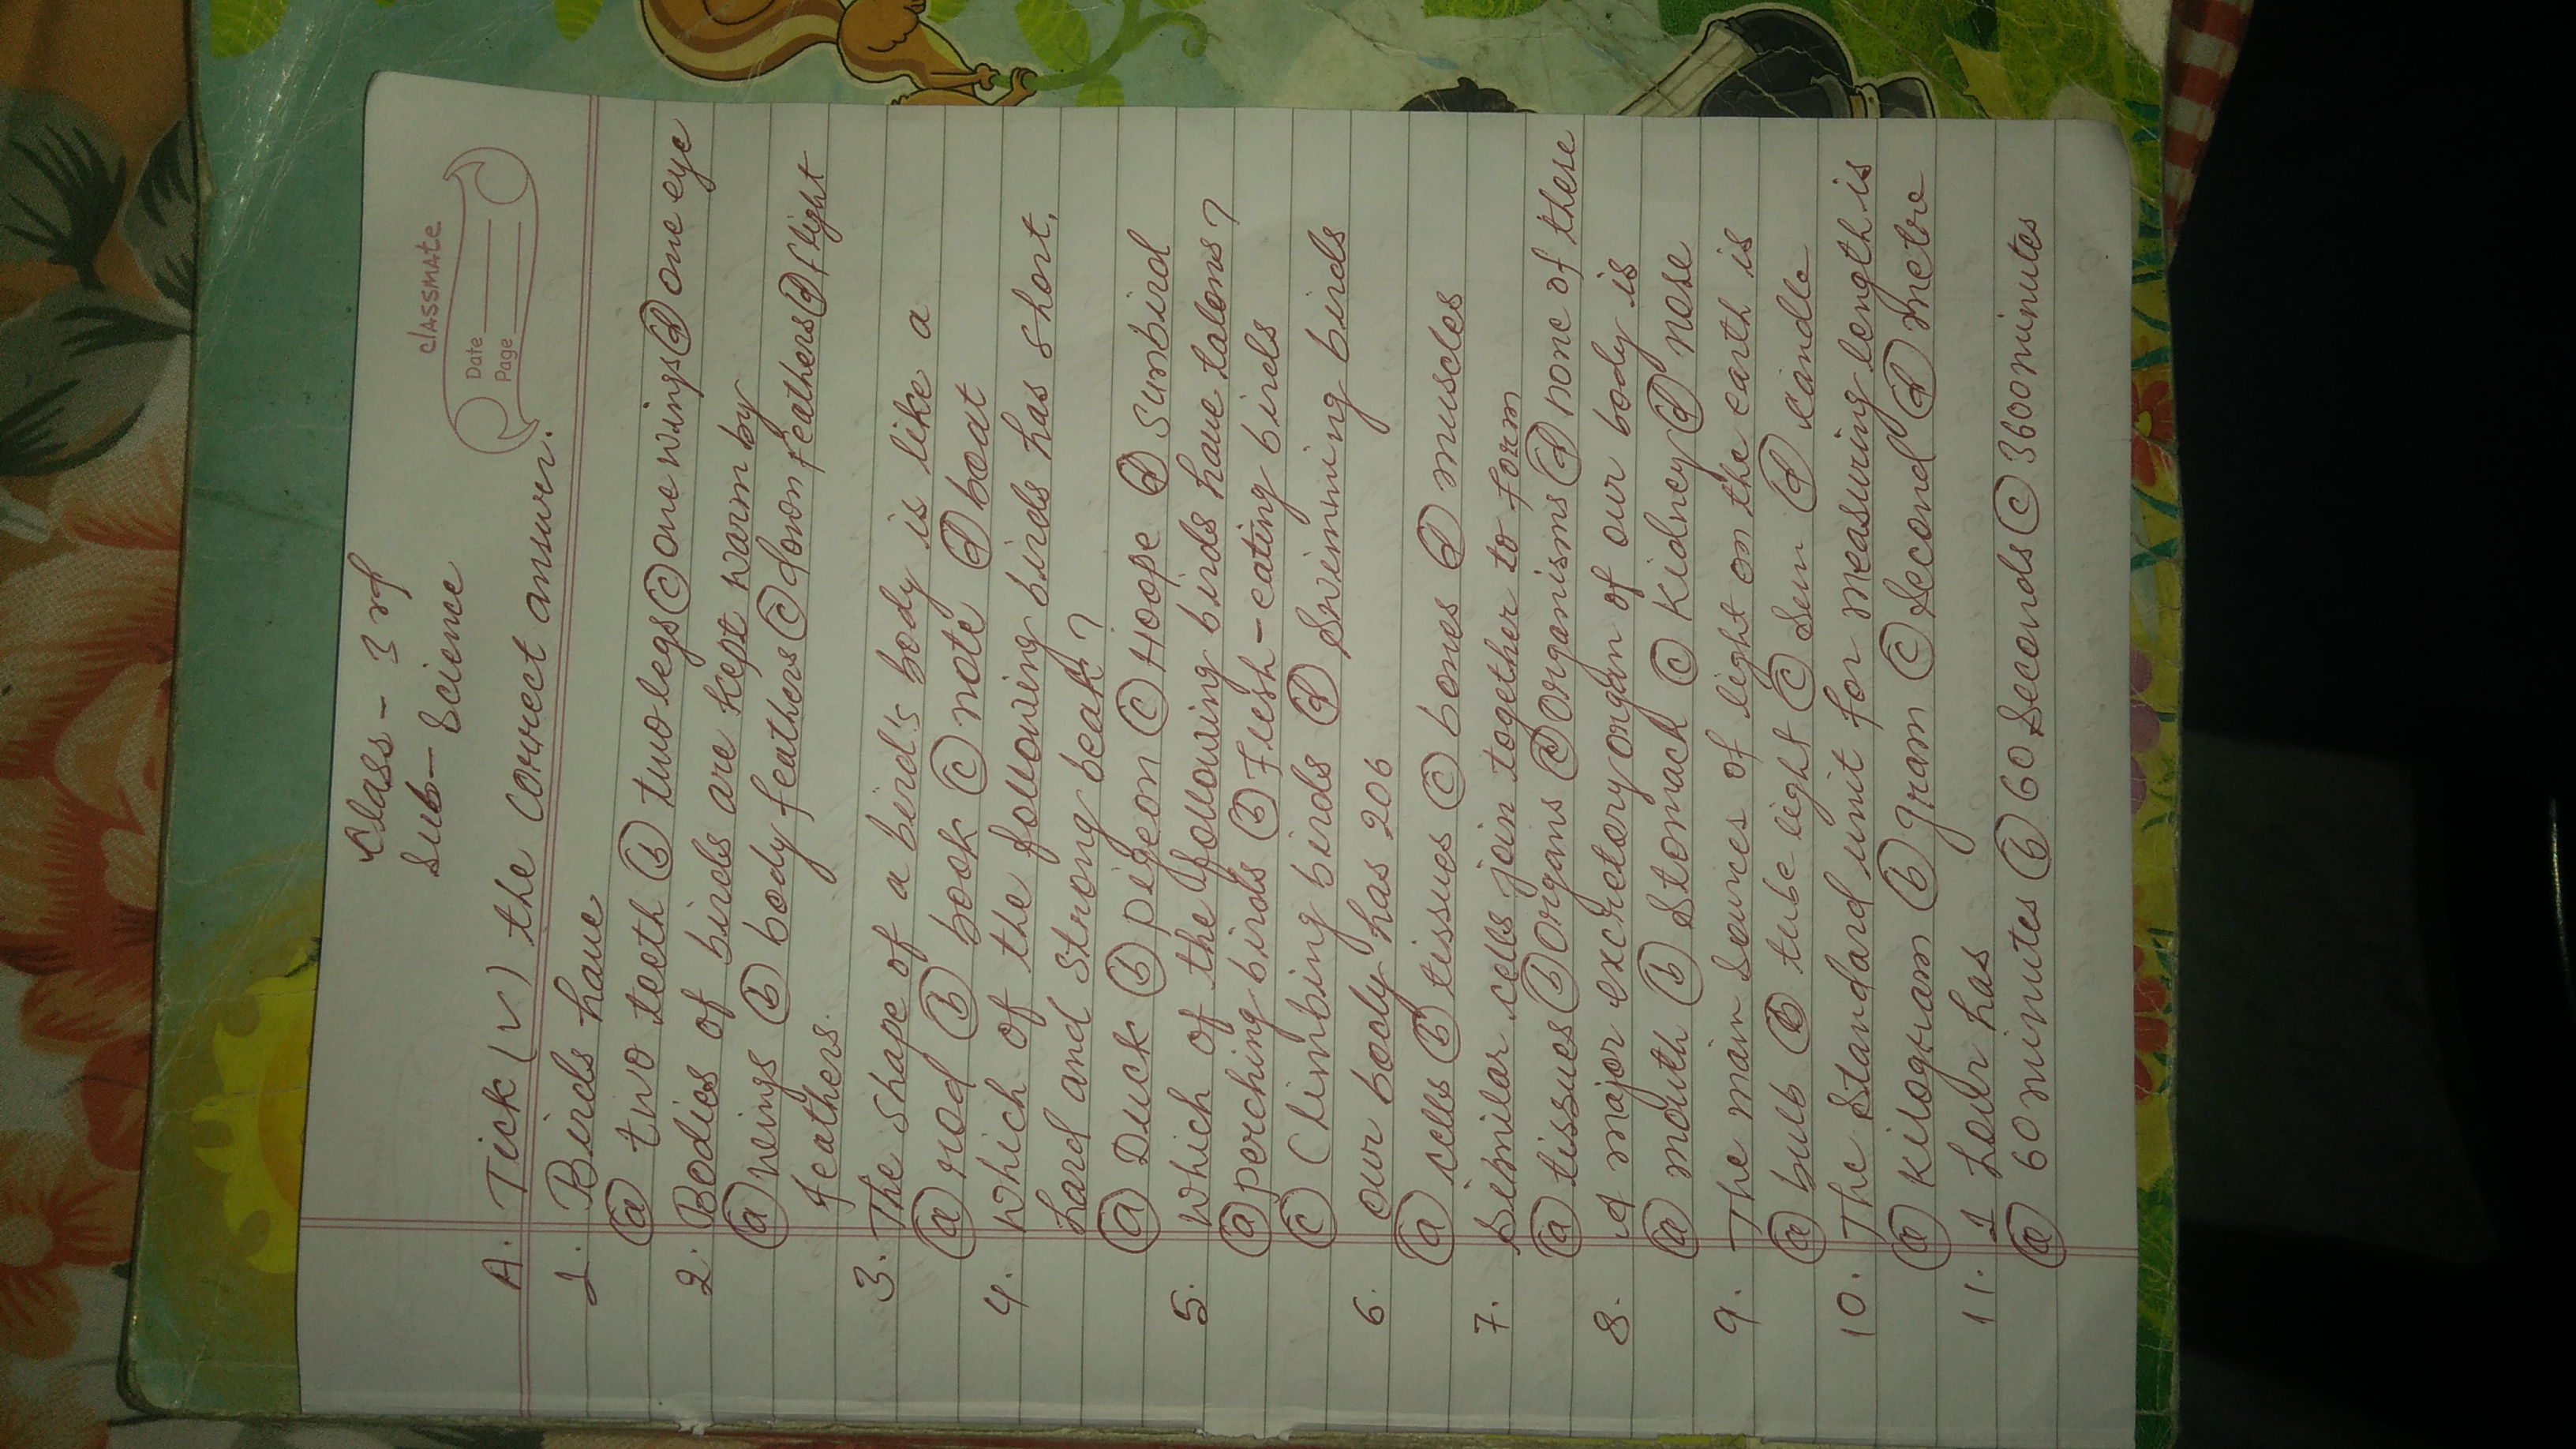 Class - 3rd
Sub - Science
classmate
Date
Page
A. Tick (✓) the correct answer.
1. Birds have
(a) two teeth (b) two legs (c) one wings (d) one eye
2. Bodies of birds are kept warm by
(a) wings (b) body feathers (c) down feathers (d) flight
feathers.
3. The shape of a bird's body is like a
(a) rod (b) book (c) note (d) boat
4. which of the following birds has short,
hard and strong beak?
(a) Duck (b) pigeon (c) Hoope (d) Sunbird
5. which of the following birds have talons?
(a) perching birds (b) Flesh-eating birds
(c) Climbing birds (d) Swimming birds
6. our body has 206
(a) cells (b) tissues (c) bones (d) muscles
7. Similar cells join together to form
(a) tissues (b) organs (c) organisms (d) none of these
8. A major excretory organ of our body is
(a) mouth (b) Stomach (c) kidney (d) nose
9. The main sources of light on the earth is
(a) bulb (b) tube light (c) Sun (d) candle
10. The Standard unit for measuring length is
(a) kilogram (b) gram (c) Second (d) metre
11. 1 hour has
(a) 60 minutes (b) 60 Seconds (c) 3600 minutes